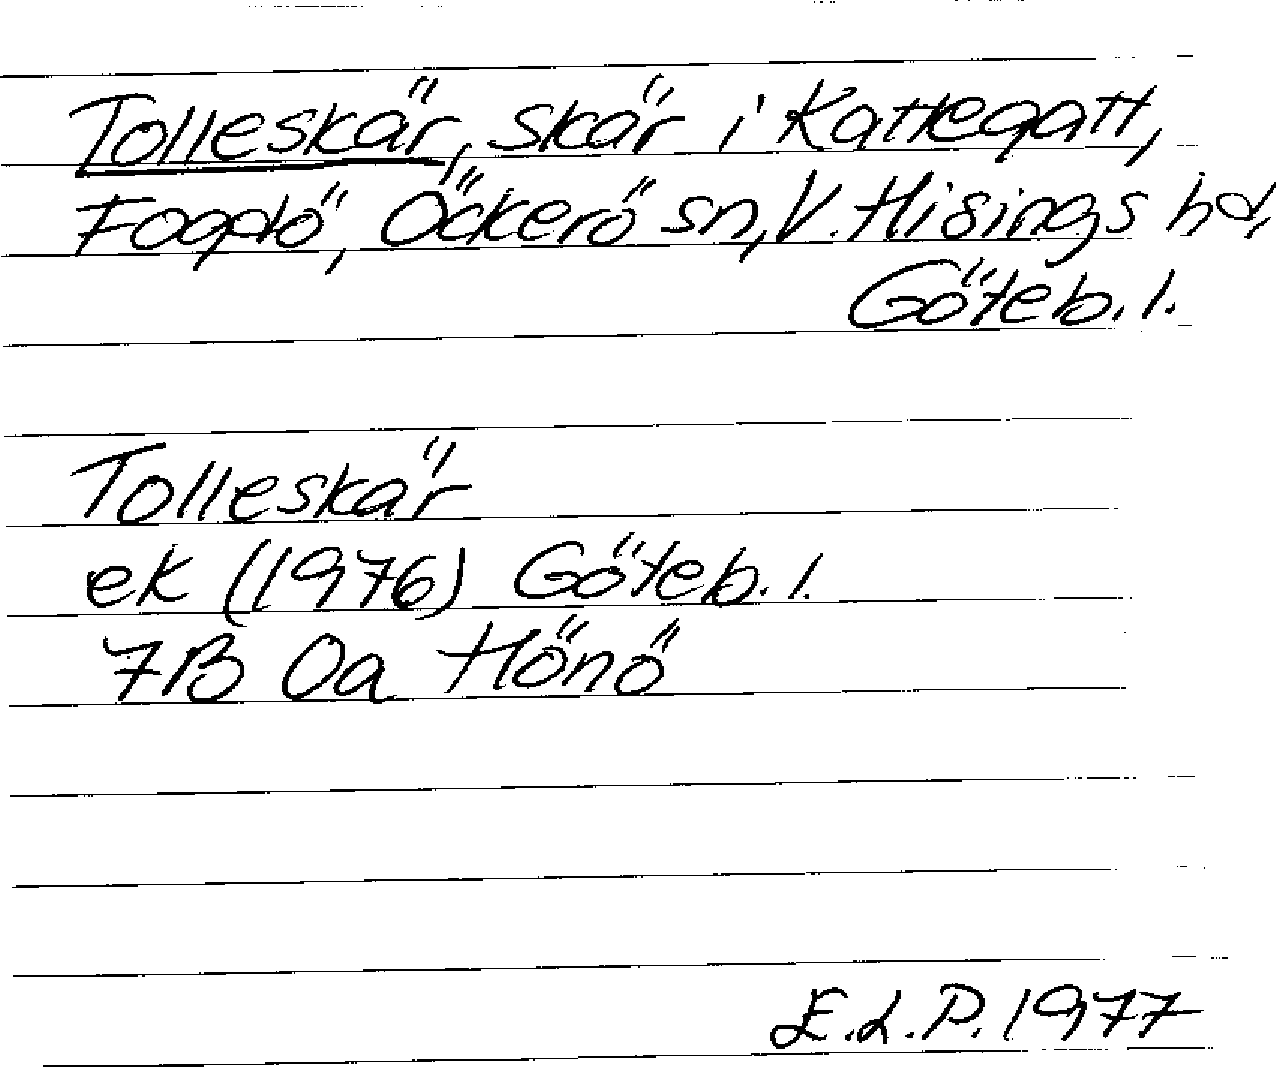 Tolleskär, skär i Kattegatt,
Fogelö, Öckerö sn, V. Hisings hd,
Göteb. l.
Tolleskär
ek (1976) Göteb. l.
7B 0a Hönö
E.L.P. 1977